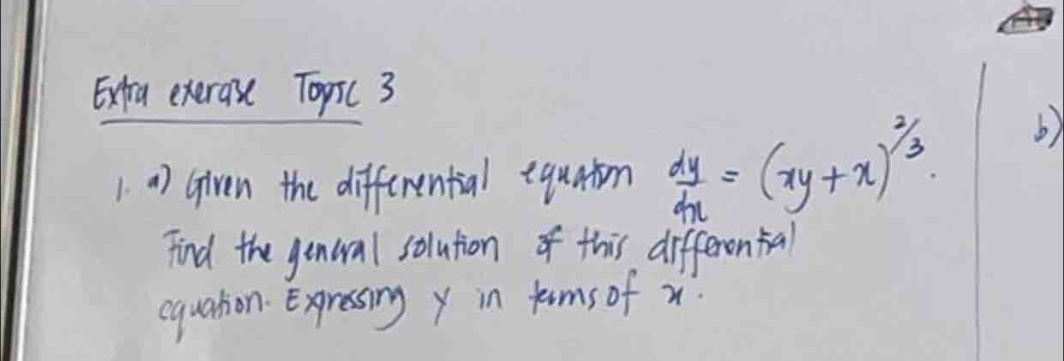 Extra exercise Topic 3
1. a) Given the differential equation dy/dx = (xy + x)^2/3.
Find the general solution of this differential
equation. Expressing y in terms of x.
b)